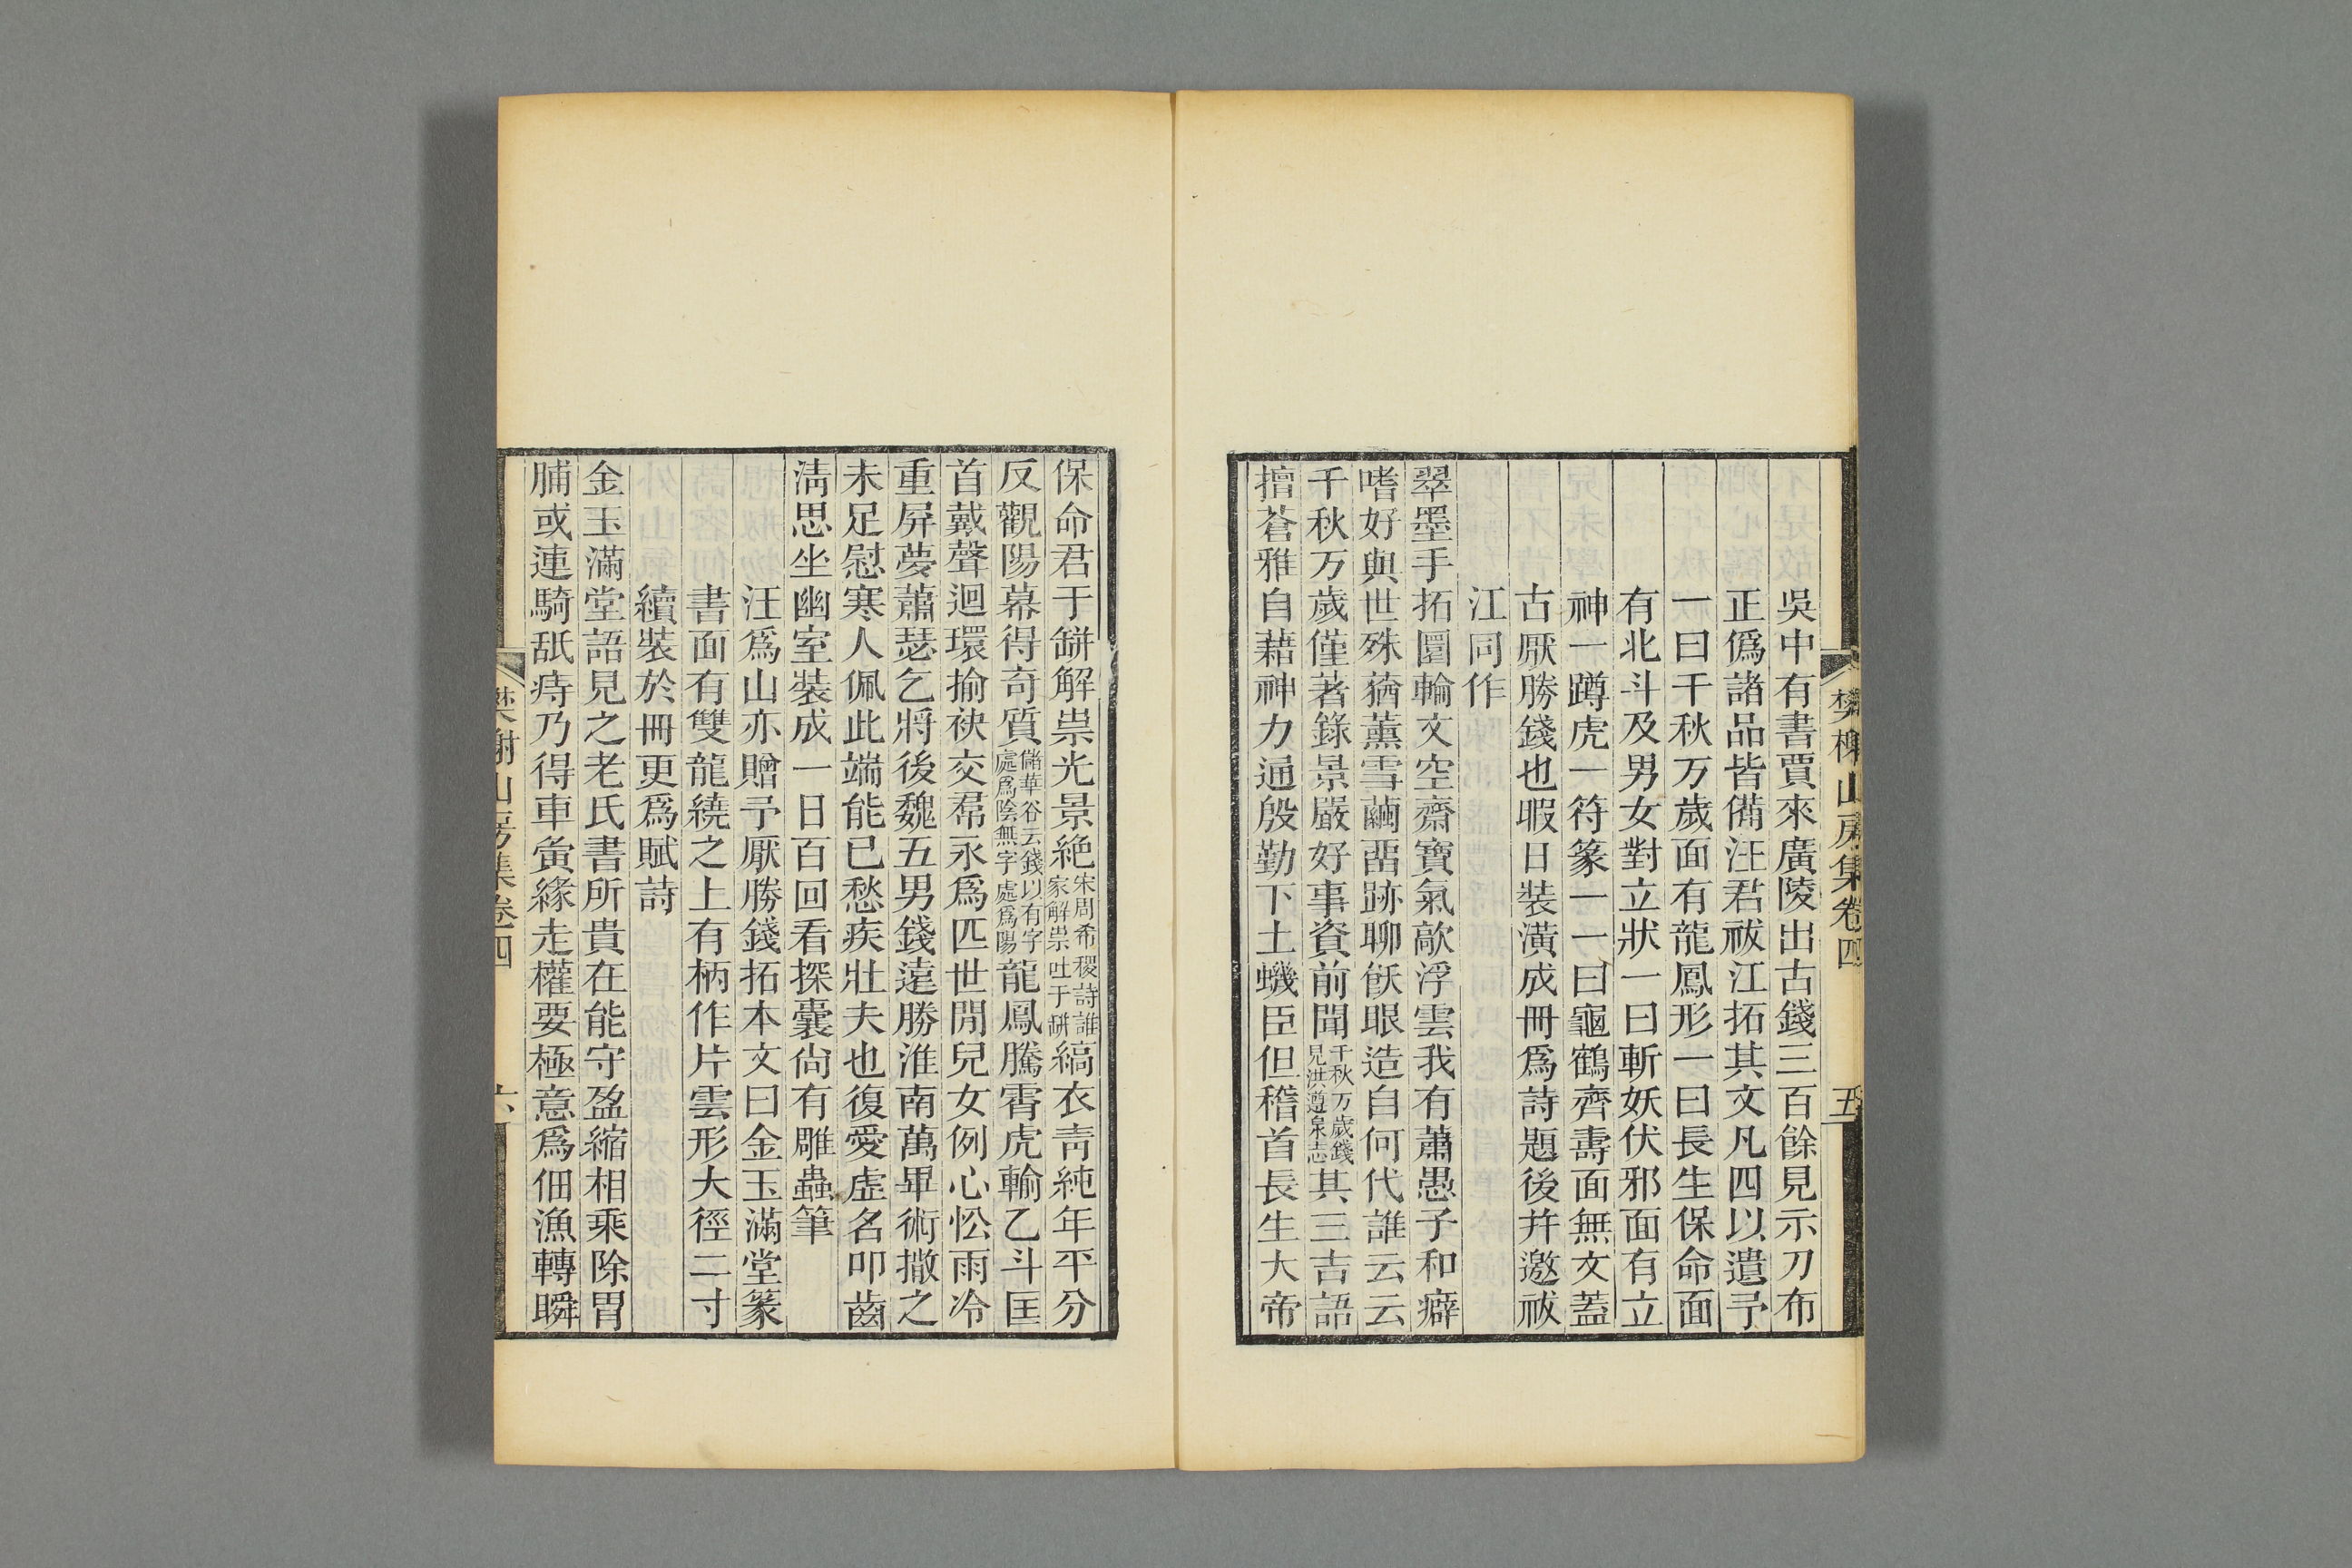 樊榭山房集卷四
五
吳中有書賈來廣陵出古錢三百餘見示刀布
正僞諸品皆備汪君祓江拓其文凡四以遺予
一曰千秋万歲面有龍鳳形一曰長生保命面
有北斗及男女對立狀一曰斬妖伏邪面有立
神一蹲虎一符篆一一曰龜鶴齊壽面無文蓋
古厭勝錢也暇日裝潢成冊爲詩題後幷邀祓
江同作
翠墨手拓圜輪文空齋寶氣歊浮雲我有蕭愚子和癖
嗜好與世殊蕕薰雪繭點跡聊飫眼造自何代誰云云
千秋万歲僅著錄景嚴好事資前聞千秋万歲錢見洪遵泉志其三吉語
擅蒼雅自藉神力通殷勤下土蟣臣但稽首長生大帝
保命君于缾解祟光景絕宋周希稷詩誰家解祟吐于缾縞衣靑純年平分
反觀陽幕得奇質儲華谷云錢以有字處爲陰無字處爲陽龍鳳騰霄虎輸乙斗匡
首戴聲迴環揄袂交帬永爲匹世閒兒女例心忪雨冷
重屏夢蕭瑟乞將後魏五男錢遠勝淮南萬畢術撒之
未足慰寒人佩此端能已愁疾壯夫也復愛虛名叩齒
淸思坐幽室裝成一日百回看探囊尙有雕蟲筆
汪爲山亦贈予厭勝錢拓本文曰金玉滿堂篆
書面有雙龍繞之上有柄作片雲形大徑二寸
續裝於冊更爲賦詩
金玉滿堂語見之老氏書所貴在能守盈縮相乘除胃
脯或連騎舐痔乃得車夤緣走權要極意爲佃漁轉瞬
樊榭山房集卷四
六